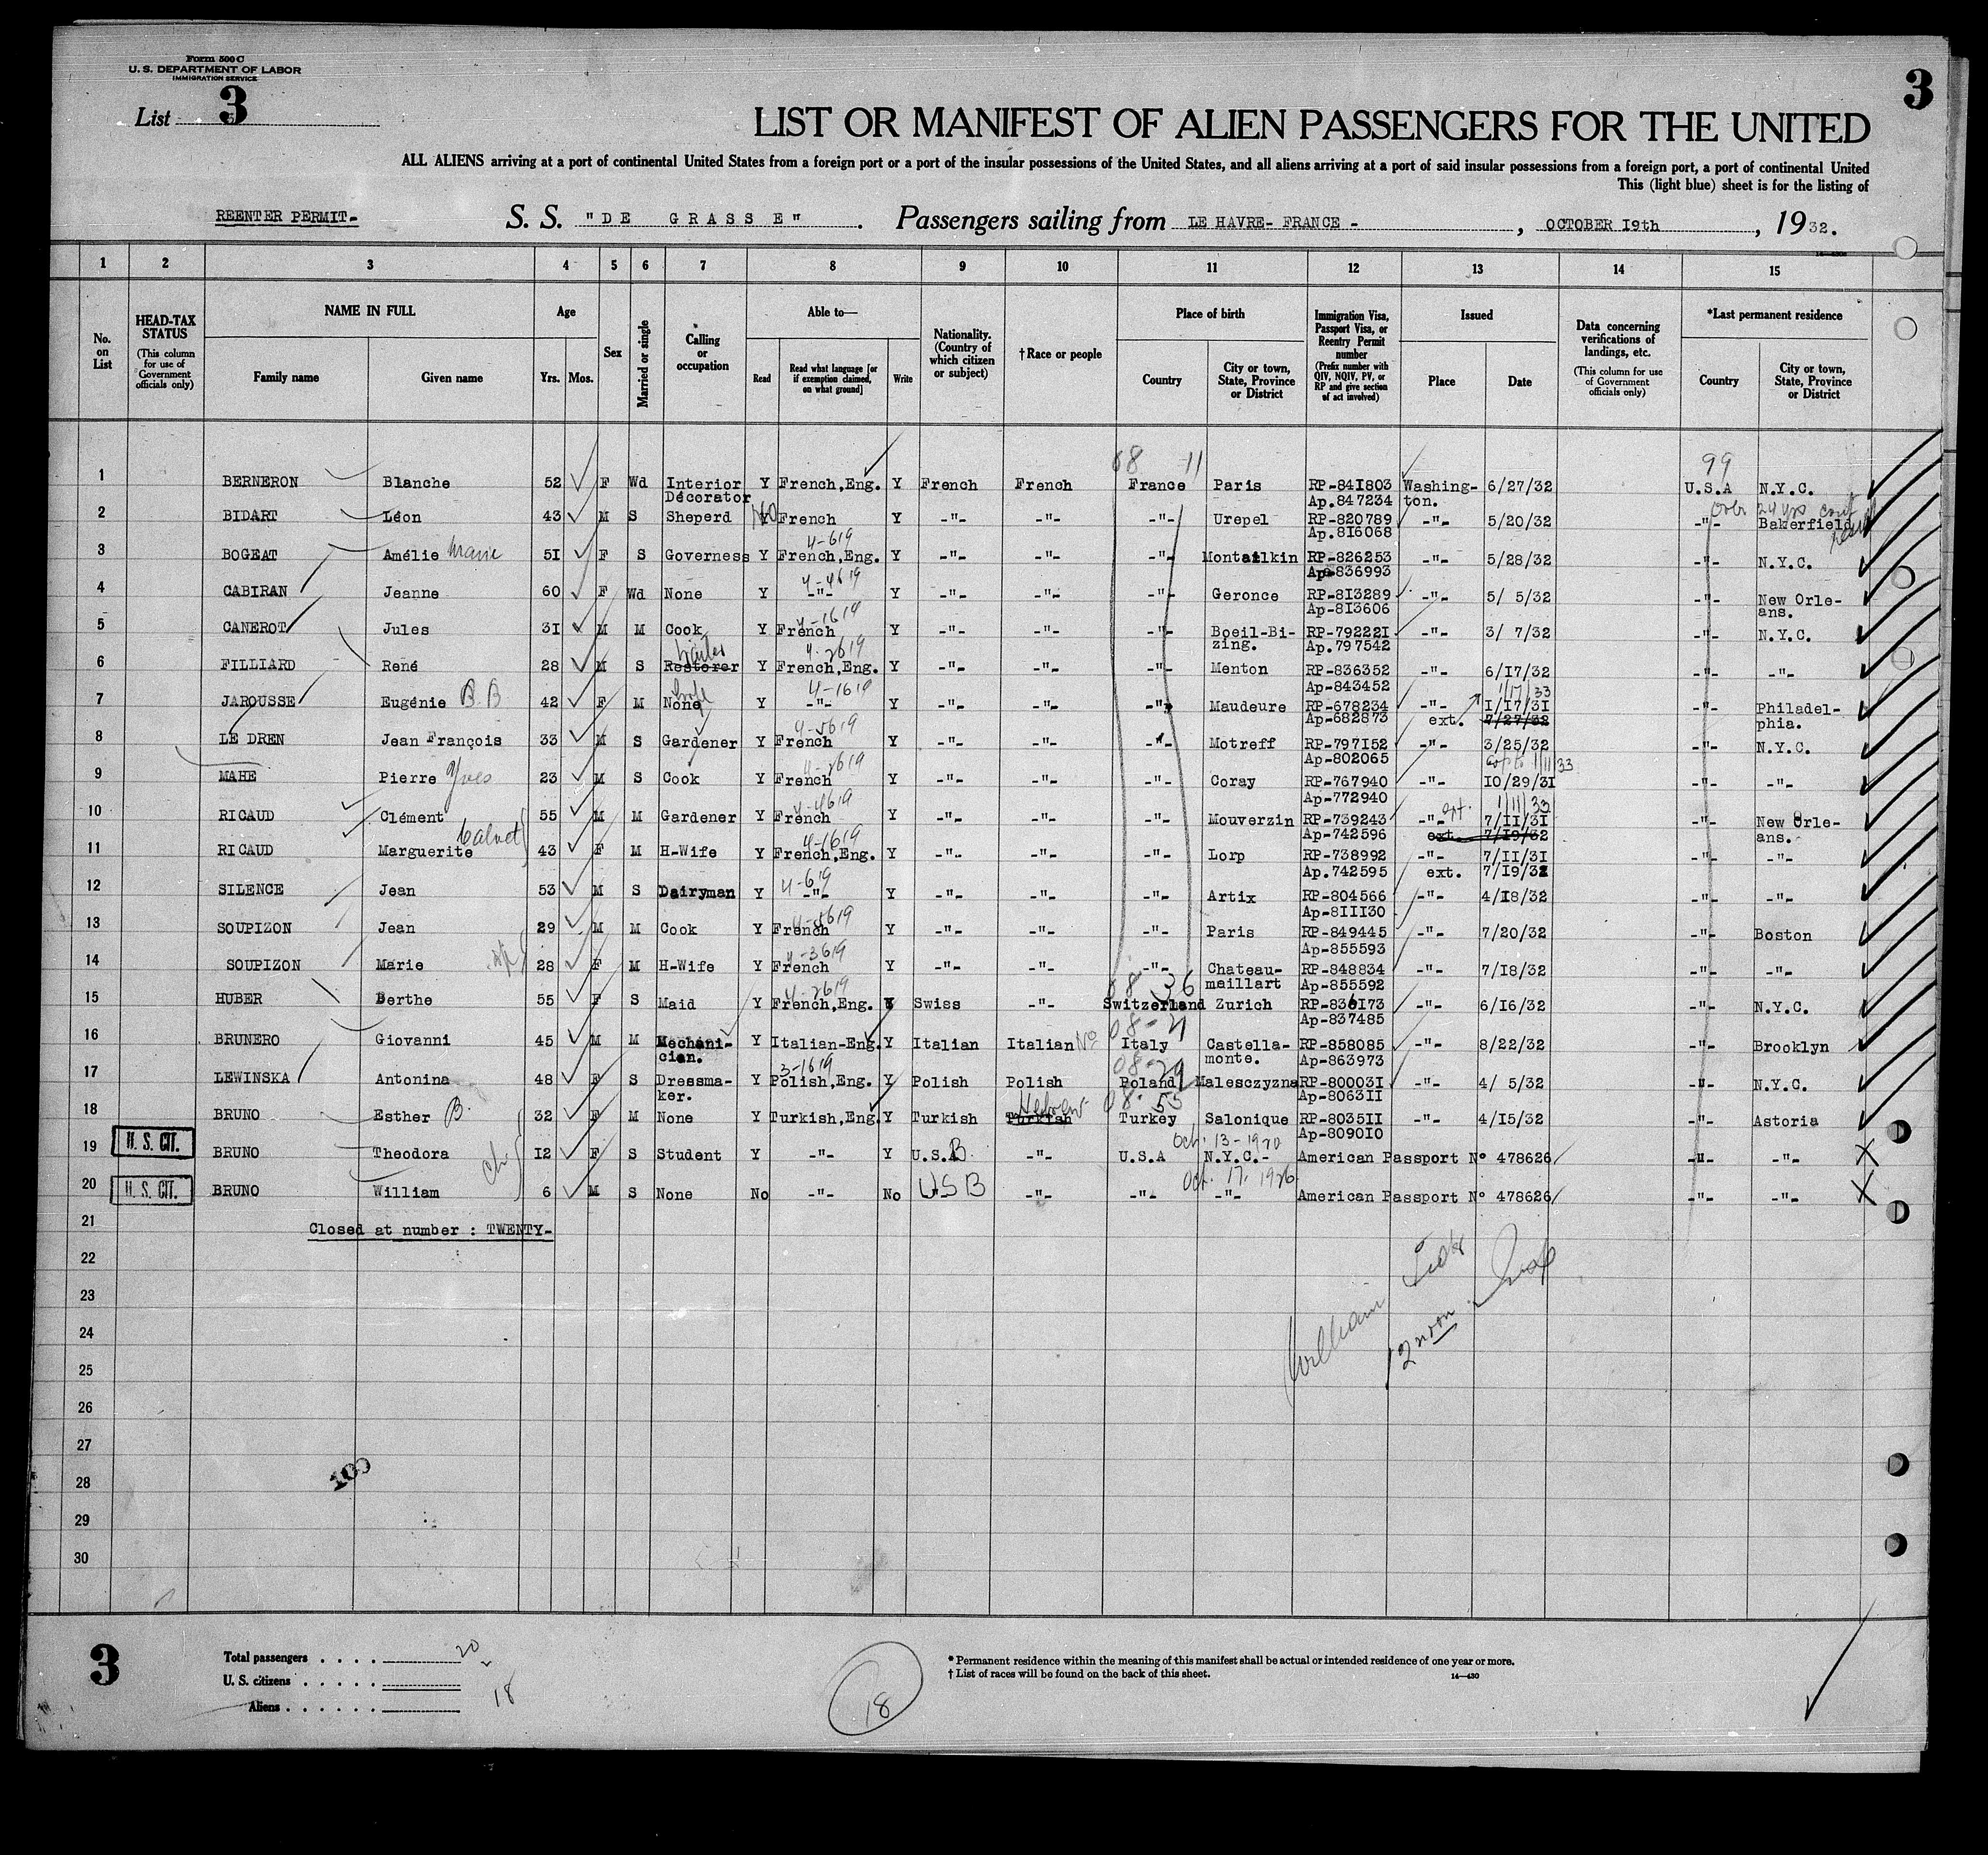 Form 500 C
U. S. DEPARTMENT OF LABOR
IMMIGRATION SERVICE
List 3
3
LIST OR MANIFEST OF ALIEN PASSENGERS FOR THE UNITED
ALL ALIENS arriving at a port of continental United States from a foreign port or a port of the insular possessions of the United States, and all aliens arriving at a port of said insular possessions from a foreign port, a port of continental United
This (light blue) sheet is for the listing of
REENTER PERMIT- S. S. "DE GRASSE". Passengers sailing from LE HAVRE- FRANCE -, OCTOBER 19th, 1932.
1 2 3 4 5 6 7 8 9 10 11 12 13 14 15
No. on List
HEAD-TAX STATUS (This column for use of Government officials only)
NAME IN FULL Family name Given name
Age Yrs. Mos.
Sex
Married or single
Calling or occupation
Able to— Read Read what language [or if exemption claimed, on what ground] Write
Nationality. (Country of which citizen or subject)
†Race or people
Place of birth Country City or town, State, Province or District
Immigration Visa, Passport Visa, or Reentry Permit number (Prefix number with QIV, NQIV, PV, or RP and give section of act involved)
Issued Place Date
Data concerning verifications of landings, etc. (This column for use of Government officials only)
*Last permanent residence Country City or town, State, Province or District
68 11 99
1 BERNERON Blanche 52 F Wd Interior Décorator Y French,Eng. Y French French France Paris RP-841803 Ap.847234 Washington. 6/27/32 U.S.A N.Y.C.
2 BIDART Léon 43 M S Sheperd Y No French Y -"- -"- -"- Urepel RP-820789 Ap.816068 -"- 5/20/32 -"- Bakerfield over 24 yrs
3 BOGEAT Amélie Marie 51 F S Governess Y French,Eng. 4-619 Y -"- -"- -"- Montailkin RP-826253 Ap-836993 -"- 5/28/32 -"- N.Y.C.
4 CABIRAN Jeanne 60 F Wd None Y -"- 4-4619 Y -"- -"- -"- Geronce RP-813289 Ap-813606 -"- 5/ 5/32 -"- New Orle-ans.
5 CANEROT Jules 31 M M Cook Y French 4-1619 Y -"- -"- -"- Boeil-Bi-zing. RP-792221 Ap.797542 -"- 3/ 7/32 -"- N.Y.C.
6 FILLIARD René 28 M S Restorer Waiter Y French,Eng. 4-2619 Y -"- -"- -"- Menton RP-836352 Ap-843452 -"- 6/17/32 -"- -"-
7 JAROUSSE Eugénie B.B 42 F M None Y -"- 4-1619 Y -"- -"- -"- Maudeure RP-678234 Ap-682873 -"- ext. 1/17/33 1/17/31 7/27/32 -"- Philadel-phia.
8 LE DREN Jean François 33 M S Gardener Y French 4-5619 Y -"- -"- -"- Motreff RP-797152 Ap-802065 -"- 3/25/32 -"- N.Y.C.
9 MAHE Pierre Yves 23 M S Cook Y French 4-2619 Y -"- -"- -"- Coray RP-767940 Ap-772940 -"- 1/11/33 10/29/31 -"- -"-
10 RICAUD Clément 55 M M Gardener Y French 4-4619 Y -"- -"- -"- Mouverzin RP-739243 Ap-742596 -"- ext. 1/11/33 7/11/31 ext. 7/19/32 -"- New Orle-ans.
11 RICAUD Marguerite Calvet 43 F M H-Wife Y French,Eng. 4-1619 Y -"- -"- -"- Lorp RP-738992 Ap.742595 -"- ext. 7/11/31 7/19/32 -"- -"-
12 SILENCE Jean 53 M S Dairyman Y -"- 4-619 Y -"- -"- -"- Artix RP-804566 Ap-811130 -"- 4/18/32 -"- -"-
13 SOUPIZON Jean 29 M M Cook Y French 4-5619 Y -"- -"- -"- Paris RP-849445 Ap-855593 -"- 7/20/32 -"- Boston
14 SOUPIZON Marie 28 F M H-Wife Y French 4-3619 Y -"- -"- -"- Chateau-maillart RP-848834 Ap-855592 -"- 7/18/32 -"- -"-
15 HUBER Berthe 55 F S Maid Y French,Eng. 4-2619 Y Swiss -"- 08-36 Switzerland Zurich RP-836173 Ap-837485 -"- 6/16/32 -"- N.Y.C.
16 BRUNERO Giovanni 45 M M Mechani-cian. Y Italian-Eng. Y Italian Italian No 08-21 Italy Castella-monte. RP-858085 Ap-863973 -"- 8/22/32 -"- Brooklyn
17 LEWINSKA Antonina 48 F S Dressma-ker. Y Polish,Eng. 3-1619 Y Polish Polish 08-29 Poland Malesczyzna RP-800031 Ap-806311 -"- 4/ 5/32 -"- N.Y.C.
18 BRUNO Esther B. 32 F M None Y Turkish,Eng. Y Turkish Turkish Hebrew 08-55 Turkey Salonique RP-803511 Ap-809010 -"- 4/15/32 -"- Astoria
19 U. S. CIT. BRUNO Theodora 12 F S Student Y -"- Y U.S.B. -"- U.S.A N.Y.C.- Oct. 13-1920 American Passport N° 478626 -"- -"- X
20 U. S. CIT. BRUNO William 6 M S None No -"- No USB -"- -"- -"- Oct. 17, 1926 American Passport N° 478626 -"- -"- X
21 Closed at number : TWENTY-
22
23
24
25
26
27
28
29
30
William
12 noon
103
3
Total passengers . . . . 20
U. S. citizens . . . . . 2
Aliens . . . . . . 18
18
* Permanent residence within the meaning of this manifest shall be actual or intended residence of one year or more.
† List of races will be found on the back of this sheet. 14—430